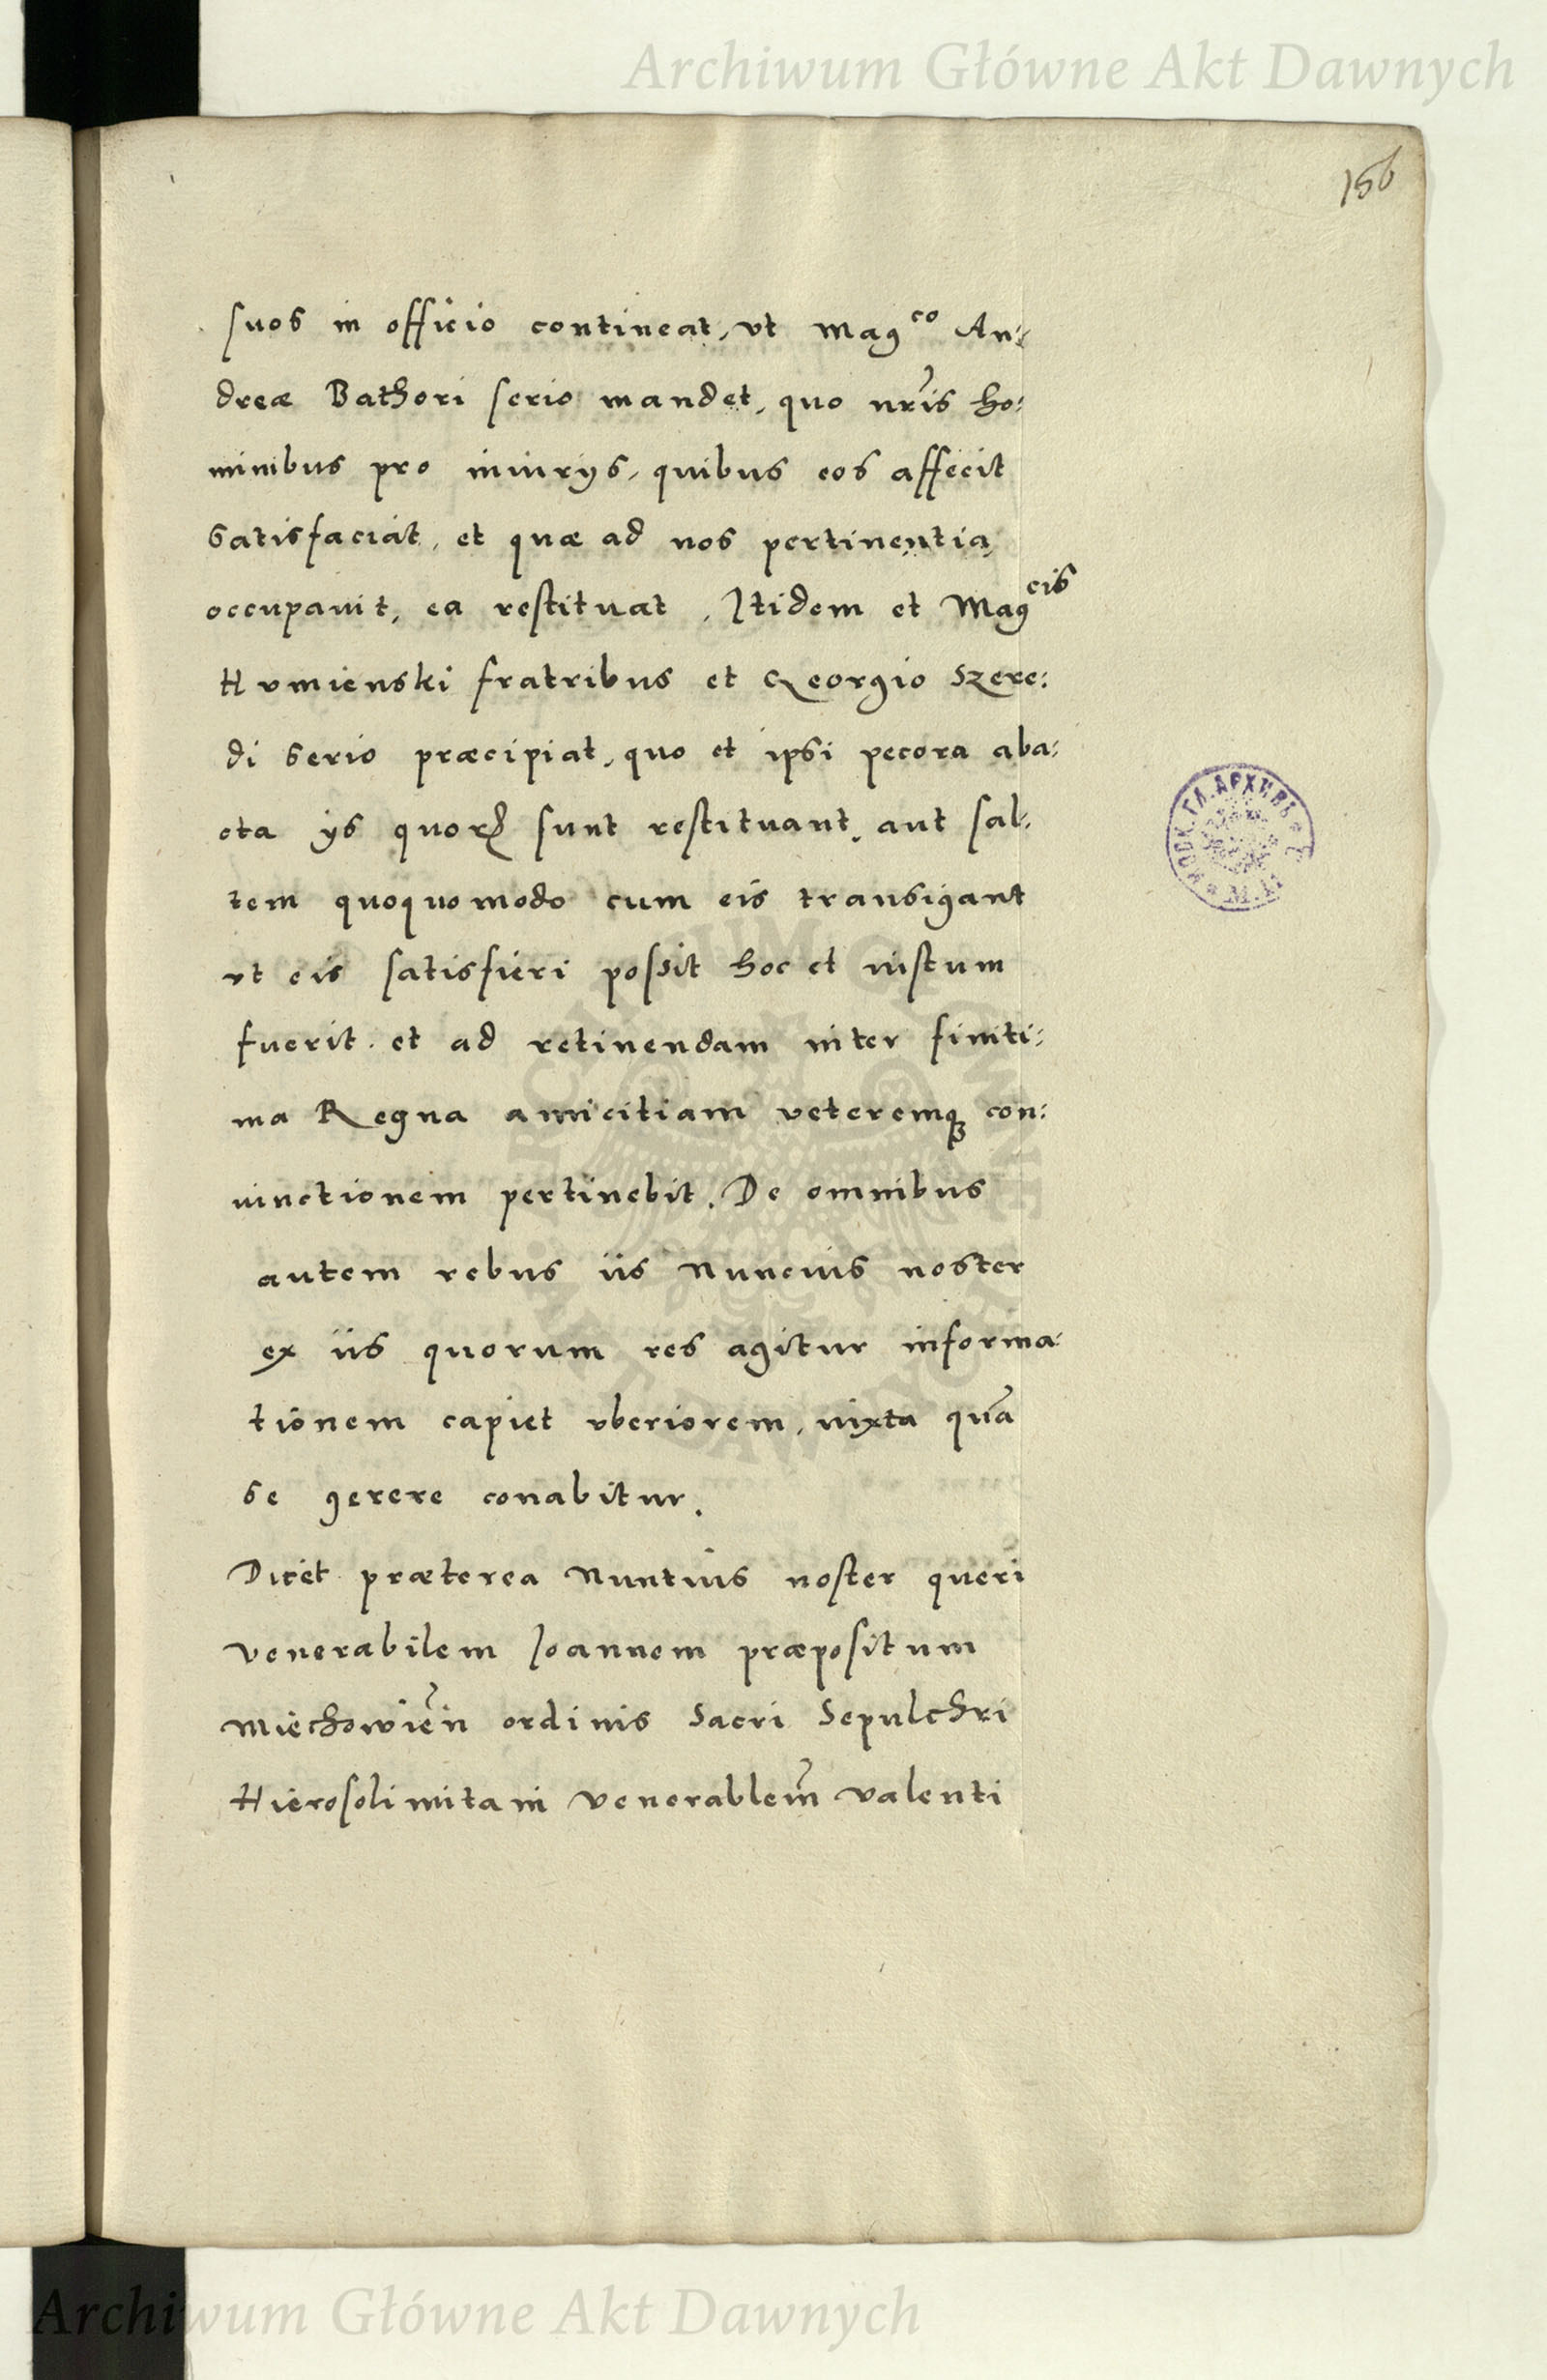 Archiwum Główne Akt Dawnych
156
suos in officio contineat, vt Mag^co An:
dreæ Bathori serio mandet, quo nr̃is ho:
minibus pro iniurijs, quibus eos affecit
satisfaciat, et quæ ad nos pertinentia
occupauit, ea restituat. Itidem et Mag^cis
Humienski fratribus et Georgio Szere:
di serio præcipiat, quo et ipsi pecora aba:
cta ijs quorꝝ sunt restituant, aut sal:
tem quoquomodo cum eis transigant
vt eis satisfieri possit hoc et iustum
fuerit. et ad retinendam inter finiti:
ma Regna amicitiam veteremqꝫ con:
iunctionem pertinebit. De omnibus
autem rebus iis Nuncius noster
ex iis quorum res agitur informa:
tionem capiet vberiorem, iuxta quã
se gerere conabitur.
Dicet præterea Nuntius noster queri
venerabilem Ioannem præpositum
Miechowieñ ordinis Sacri Sepulchri
Hierosolimitani venerablem̃ Valenti
Archiwum Główne Akt Dawnych